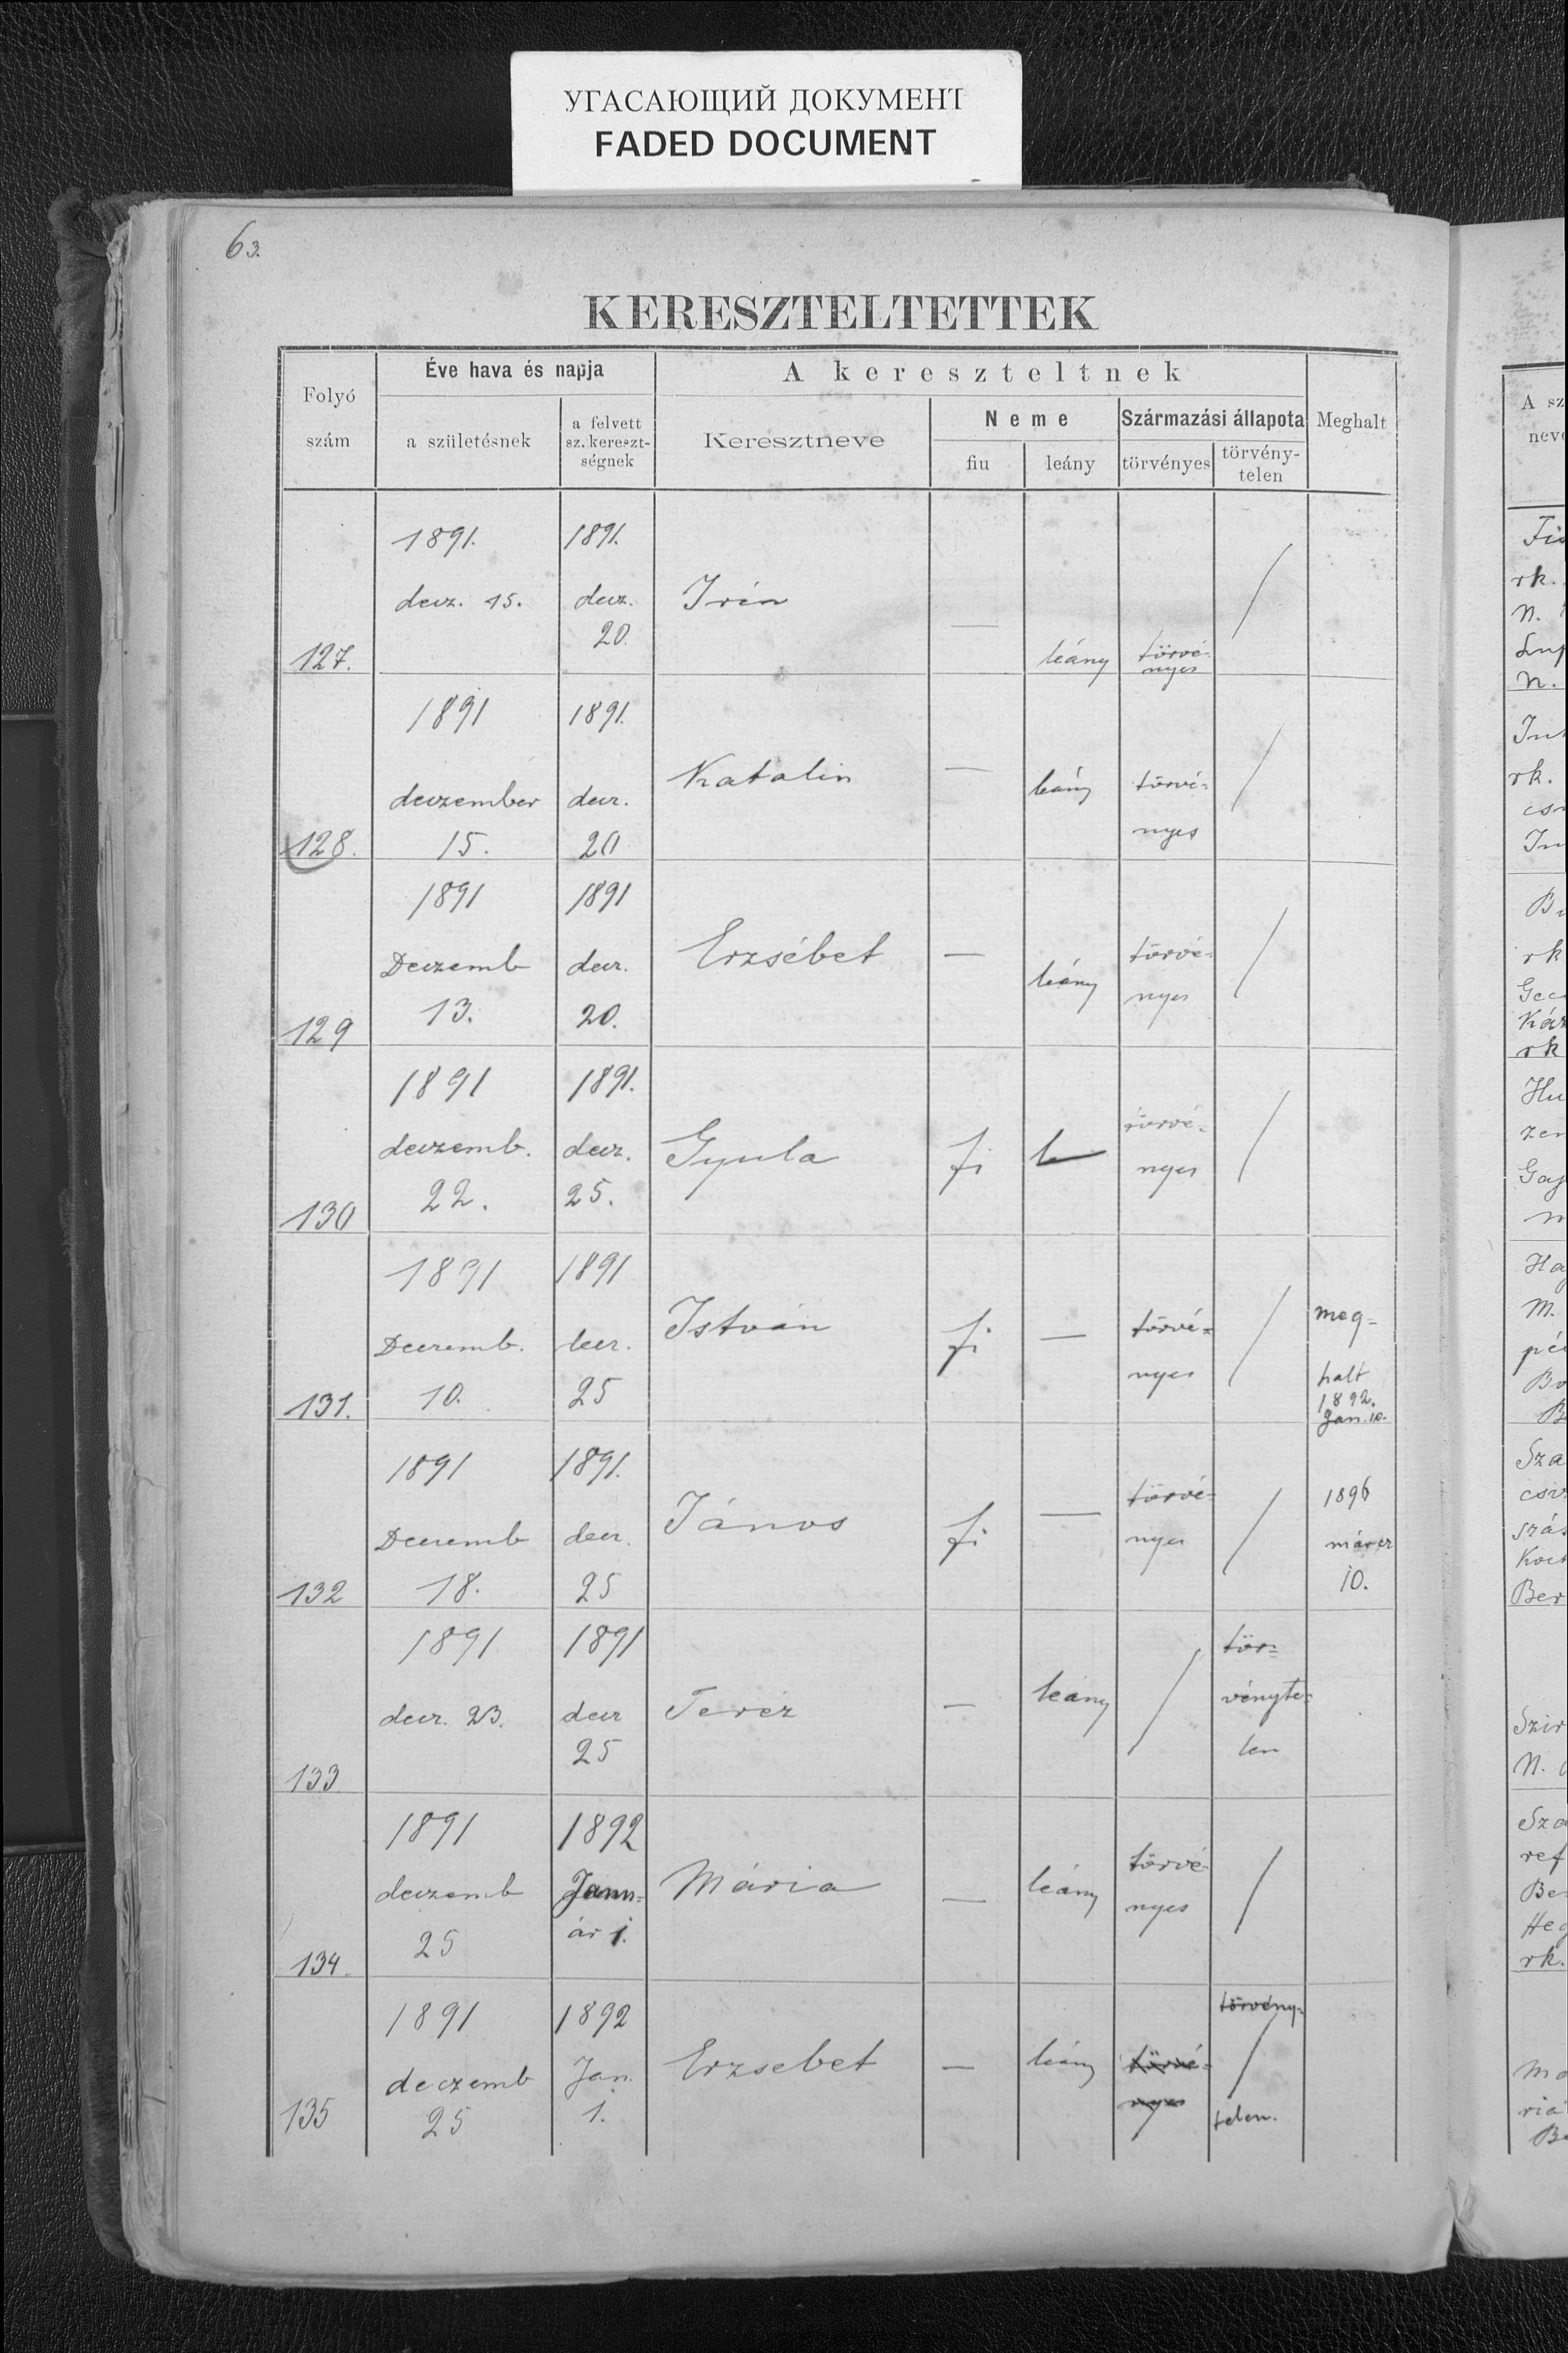 УГАСАЮЩИЙ ДОКУМЕНТ
FADED DOCUMENT
63.
KERESZTELTETTEK
Folyó szám
Éve hava és napja
a születésnek
a felvett sz. kereszt-ségnek
A kereszteltnek
Keresztneve
Neme
fiu
leány
Származási állapota
törvényes
törvény-telen
Meghalt
127.
1891.
decz. 15.
1891.
decz.
20.
Irén
—
leány
törvé-
nyes
128.
1891
deczember
15.
1891.
decz.
20
Katalin
—
leány
törvé-
nyes
129
1891
Deczemb
13.
1891
decz.
20.
Erzsébet
—
leány
törvé-
nyes
130
1891
deczemb.
22.
1891.
decz.
25.
Gyula
fi
törvé-
nyes
131.
1891
Deczemb.
10.
1891
decz.
25
István
fi
—
törvé-
nyes
meg-
halt
1892.
Jan. 10.
132
1891
Deczemb
18.
1891.
decz.
25
János
fi
—
törvé-
nyes
1896
márcz
10.
133
1891
decz. 23.
1891
decz
25
Teréz
—
leány
tör-
vényte-
len
134.
1891
deczemb
25
1892
Janu-
ár 1.
Mária
—
leány
törvé-
nyes
135
1891
deczemb
25
1892
Jan.
1.
Erzsebet
—
leány
törvé-
nyes
törvény-
telen.
A sz
neve
rk.
N.
N.
rk.
rk
rk
M.
Sza
Ber
Szir
N.
ref
rk.